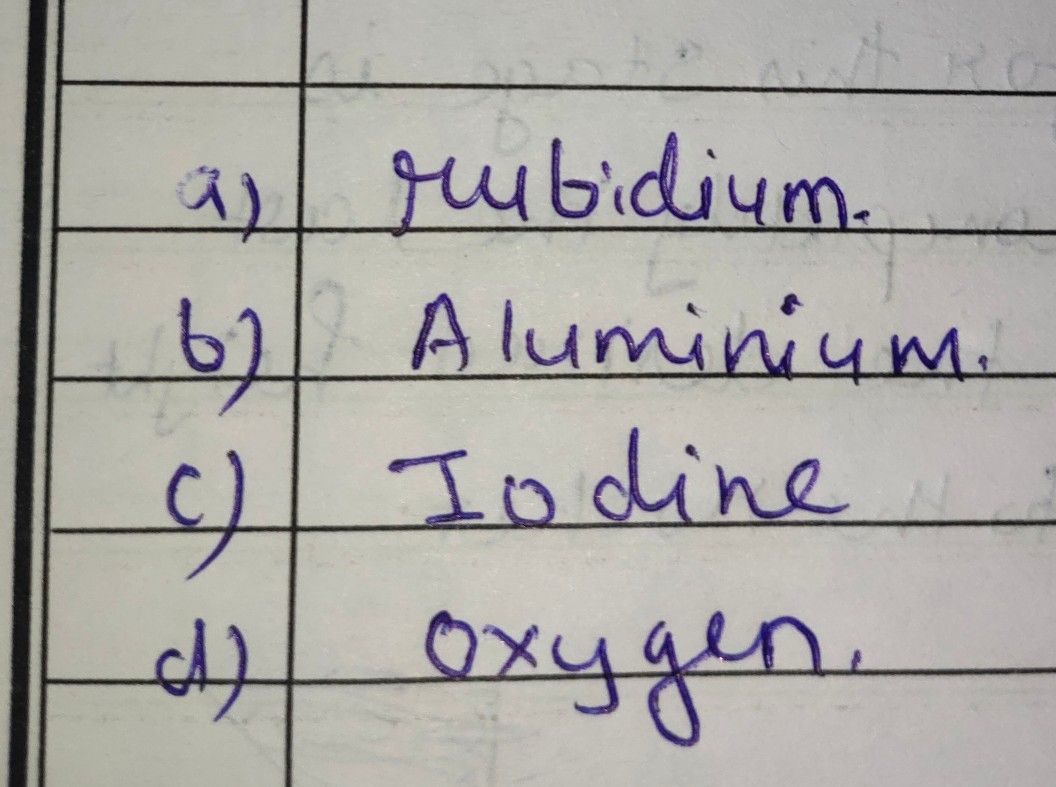 a) rubidium.
b) Aluminium.
c) Iodine
d) oxygen.